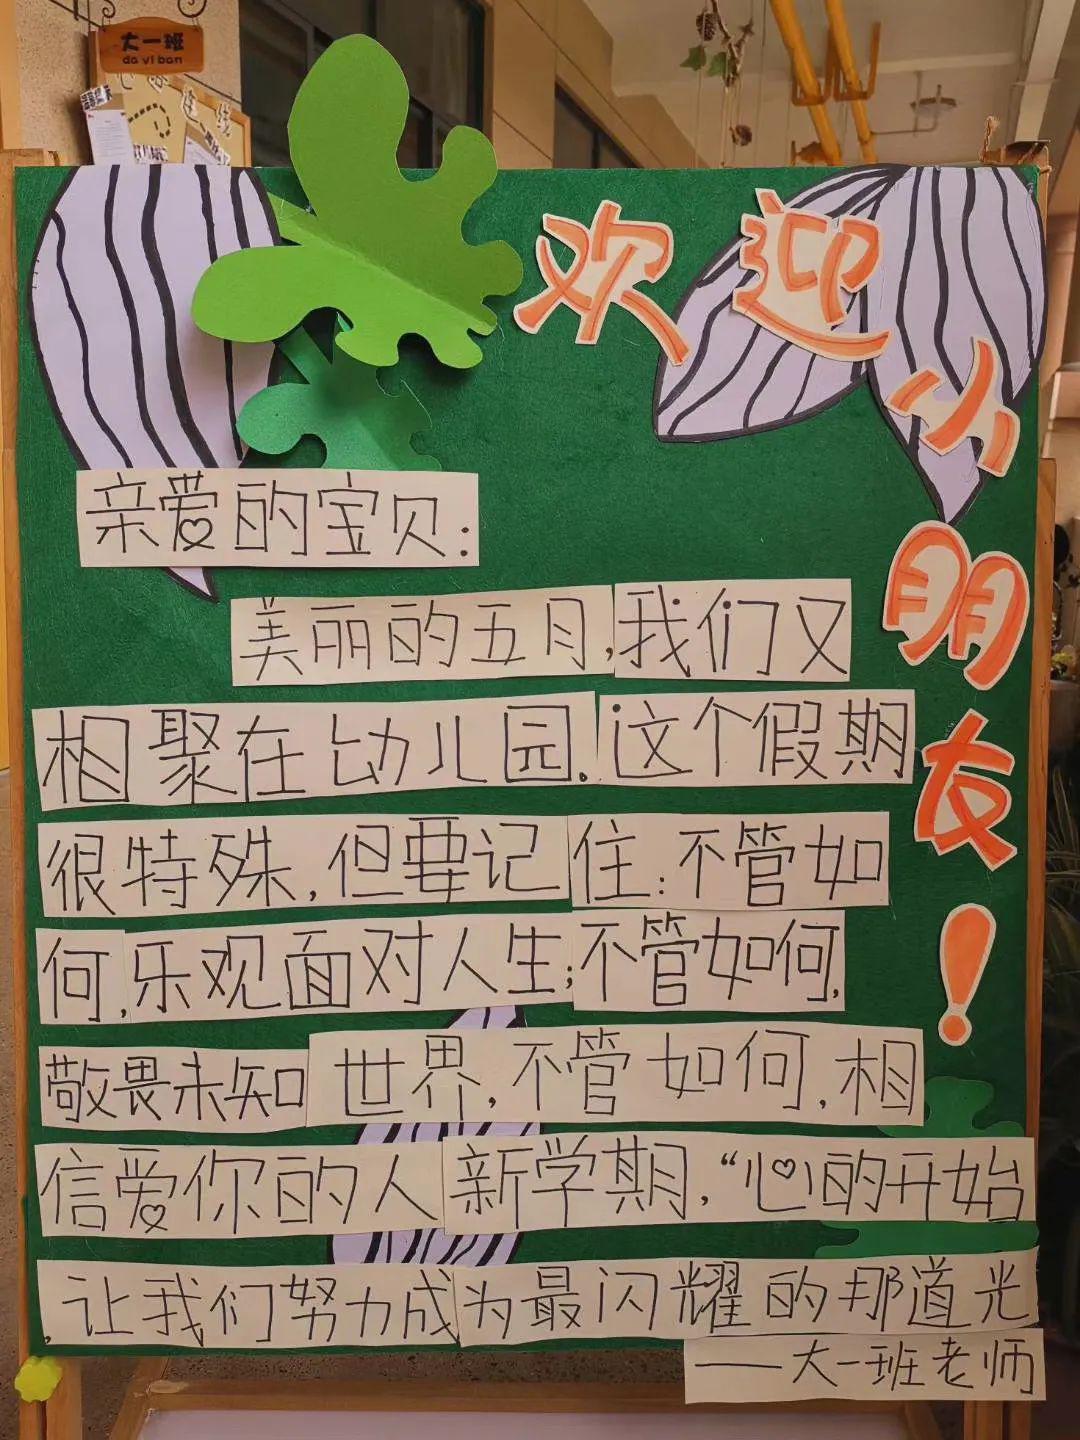 大一班
da yi ban
欢迎小朋友！
亲爱的宝贝：
美丽的五月，我们又
相聚在幼儿园。这个假期
很特殊，但要记住：不管如
何，乐观面对人生；不管如何，
敬畏未知世界，不管如何，相
信爱你的人新学期，“心的开始
，让我们努力成为最闪耀的那道光
——大一班老师